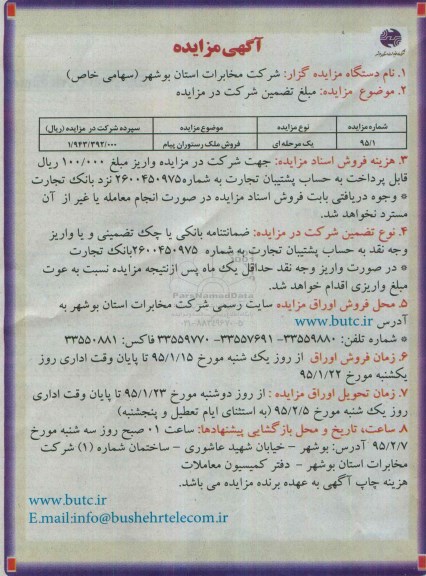 آگهی مزایده
۱. نام دستگاه مزایده گزار: شرکت مخابرات استان بوشهر (سهامی خاص)
۲. موضوع مزایده: مبلغ تضمین شرکت در مزایده
شماره مزایده نوع مزایده موضوع مزایده سپرده شرکت در مزایده (ریال)
۹۵/۱ یک مرحله ای فروش ملک رستوران پیام ۱/۹۴۳/۳۹۲/۰۰۰
۳. هزینه فروش اسناد مزایده: جهت شرکت در مزایده واریز مبلغ ۱۰۰/۰۰۰ ریال
قابل پرداخت به حساب پشتیبان تجارت به شماره ۲۶۰۰۴۵۰۹۷۵ نزد بانک تجارت
* وجوه دریافتی بابت فروش اسناد مزایده در صورت انجام معامله یا غیر از آن
مسترد نخواهد شد.
۴. نوع تضمین شرکت در مزایده: ضمانتنامه بانکی یا چک تضمینی و یا واریز
وجه نقد به حساب پشتیبان تجارت به شماره ۲۶۰۰۴۵۰۹۷۵ بانک تجارت
* در صورت واریز وجه نقد حداقل یک ماه پس ازنتیجه مزایده نسبت به عوت
مبلغ واریزی اقدام خواهد شد.
۵. محل فروش اوراق مزایده سایت رسمی شرکت مخابرات استان بوشهر به
آدرس www.butc.ir
* شماره تلفن: ۳۳۵۵۹۸۸۰- ۳۳۵۵۷۶۹۱- ۳۳۵۵۹۷۷۰ فاکس: ۳۳۵۵۰۸۸۱
۶. زمان فروش اوراق از روز یک شنبه مورخ ۹۵/۱/۱۵ تا پایان وقت اداری روز
یکشنبه مورخ ۹۵/۱/۲۲
۷. زمان تحویل اوراق مزایده : از روز دوشنبه مورخ ۹۵/۱/۲۳ تا پایان وقت اداری
روز یک شنبه مورخ ۹۵/۲/۵ (به استثنای ایام تعطیل و پنجشنبه)
۸. ساعت، تاریخ و محل بازگشایی پیشنهادها: ساعت ۰۱ صبح روز سه شنبه مورخ
۹۵/۲/۷ آدرس: بوشهر - خیابان شهید عاشوری - ساختمان شماره (۱) شرکت
مخابرات استان بوشهر - دفتر کمیسیون معاملات
هزینه چاپ آگهی به عهده برنده مزایده می باشد.
www.butc.ir
E.mail:info@bushehrtelecom.ir